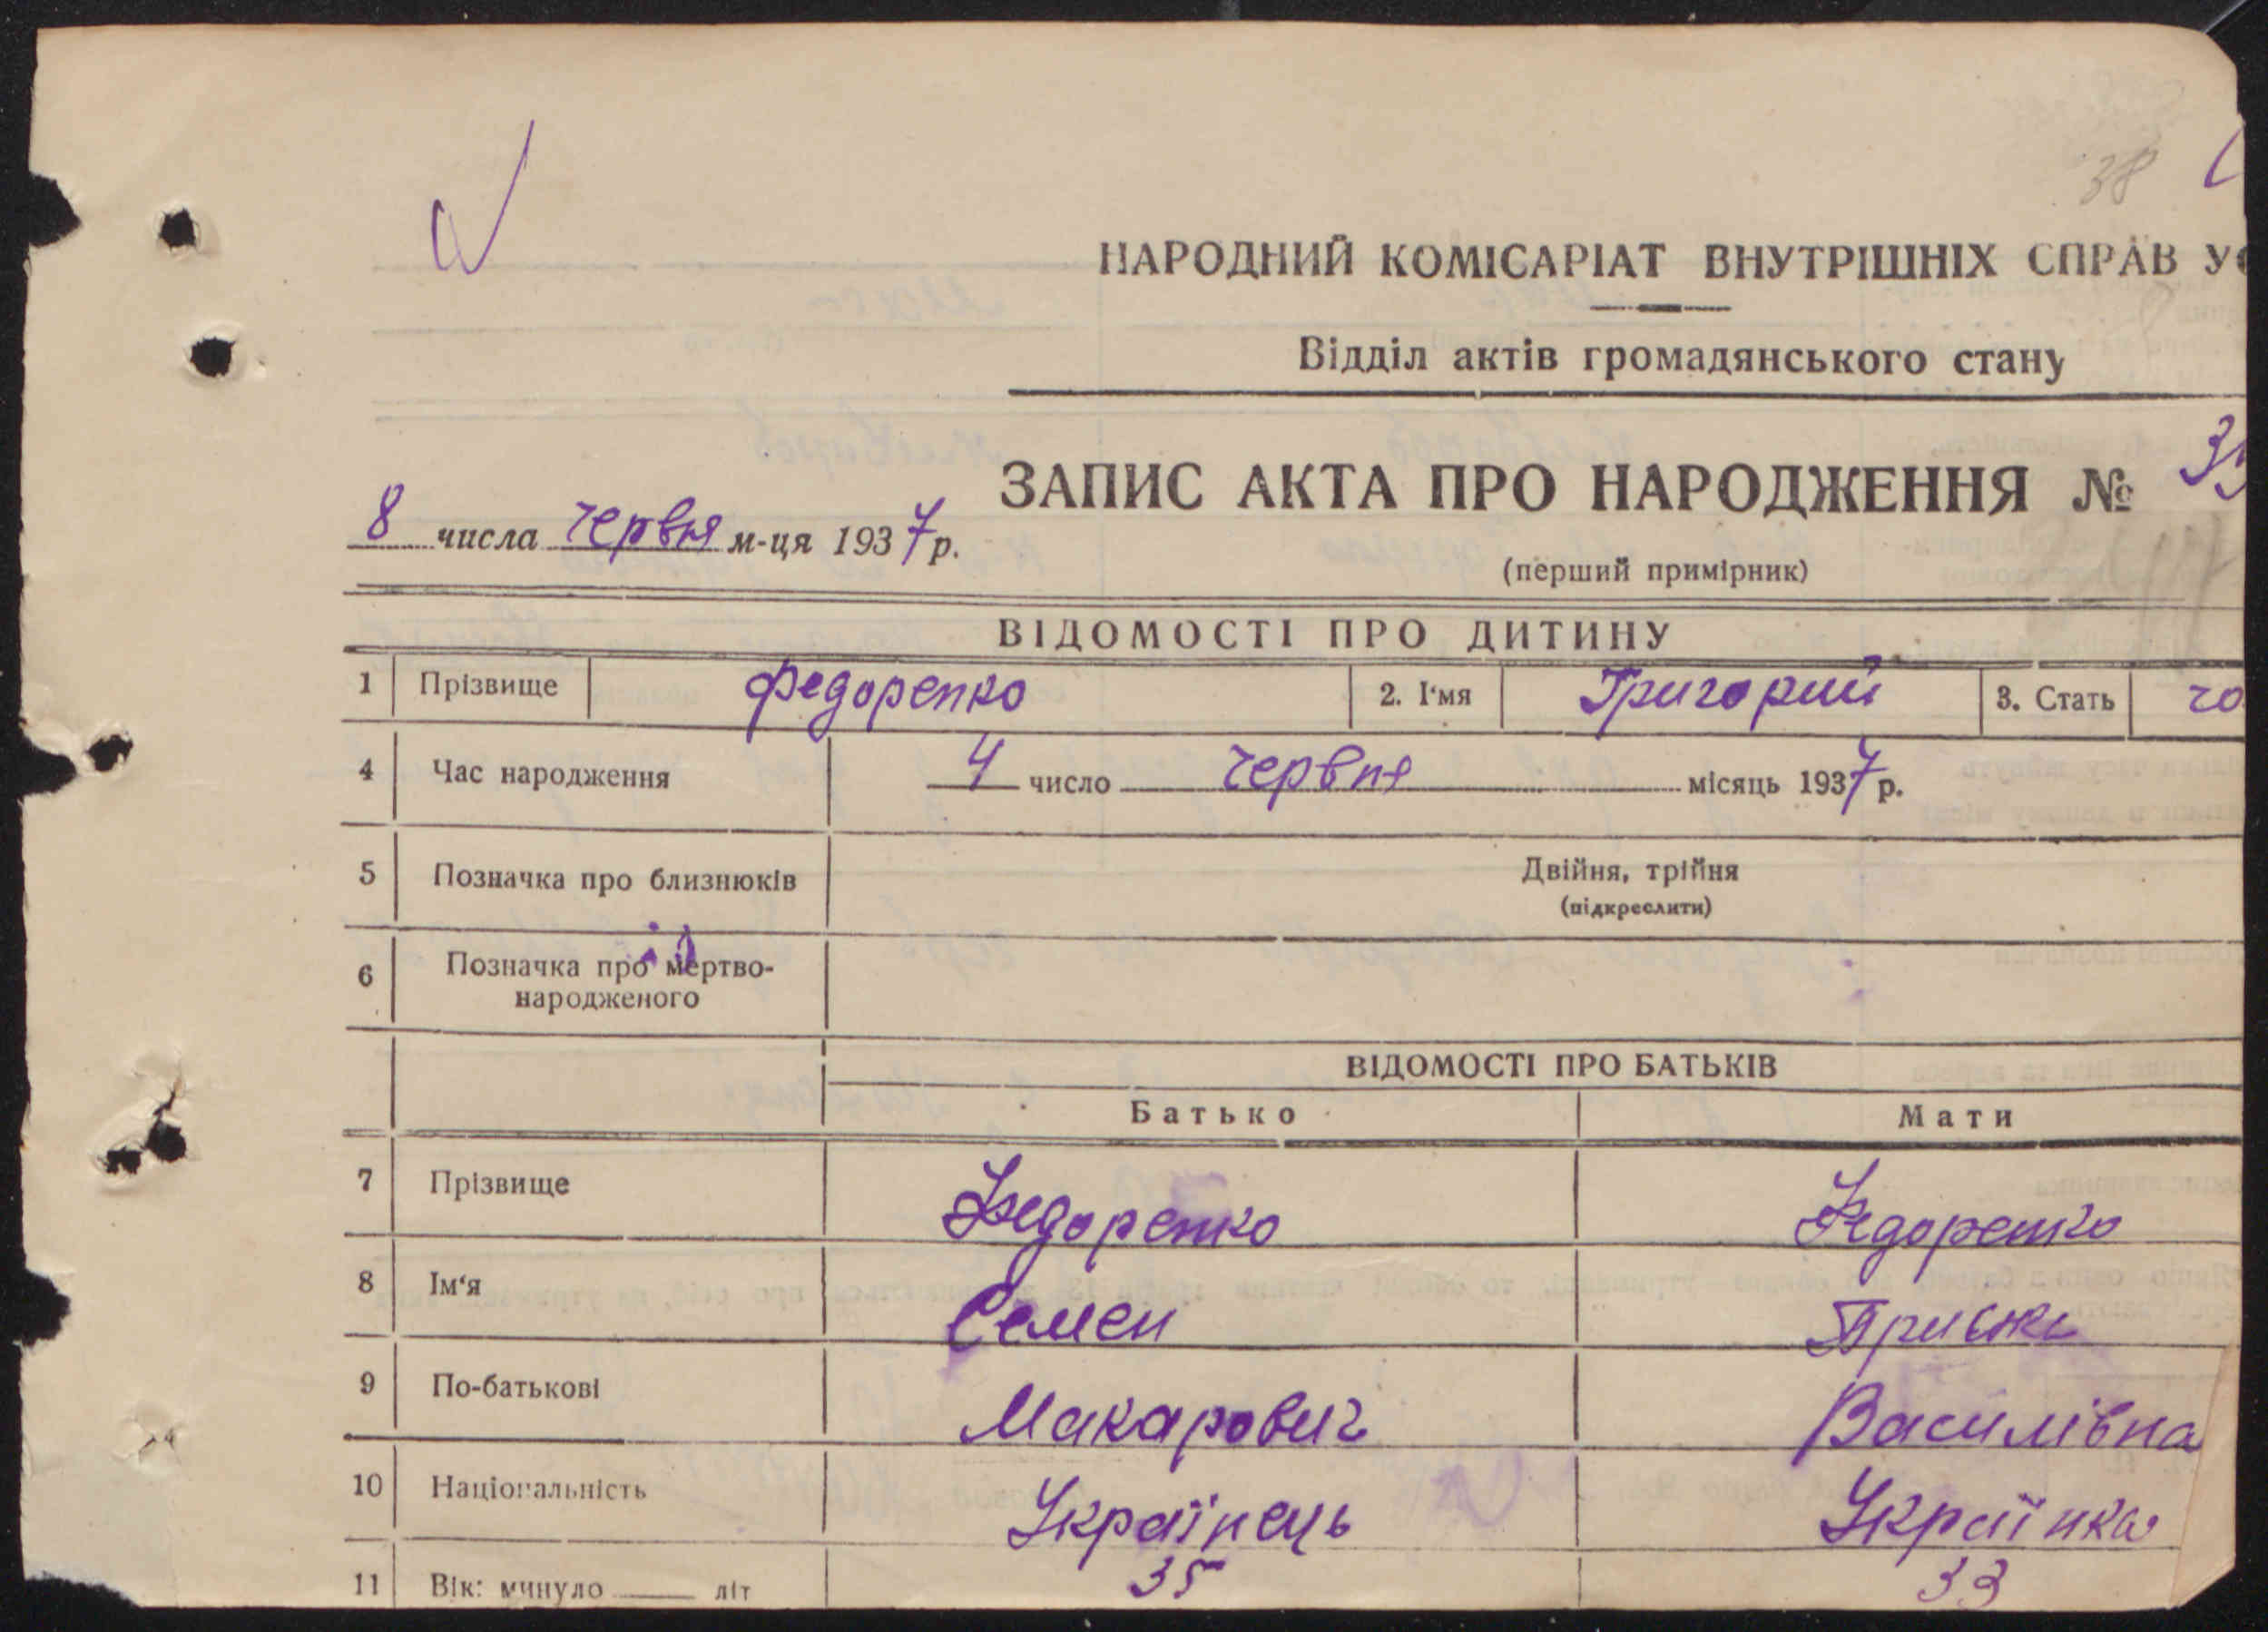 38
НАРОДНИЙ КОМІСАРІАТ ВНУТРІШНІХ СПРАВ
Відділ актів громадянського стану
ЗАПИС АКТА ПРО НАРОДЖЕННЯ №
8 числа червня м-ця 1937 р.
(перший примірник)
ВІДОМОСТІ ПРО ДИТИНУ
1 Прізвище Федоренко 2. І'мя Григорий 3. Стать чо
4 Час народження 4 число червня місяць 1937 р.
5 Позначка про близнюків Двійня, трійня
(підкреслити)
6 Позначка про мертво-
народженого
ВІДОМОСТІ ПРО БАТЬКІВ
Батько Мати
7 Прізвище Федоренко Федоренко
8 Ім'я Семен
9 По-батькові Макарович Василівна
10 Національність Українець Українка
11 Вік: минуло ____ літ 35 33